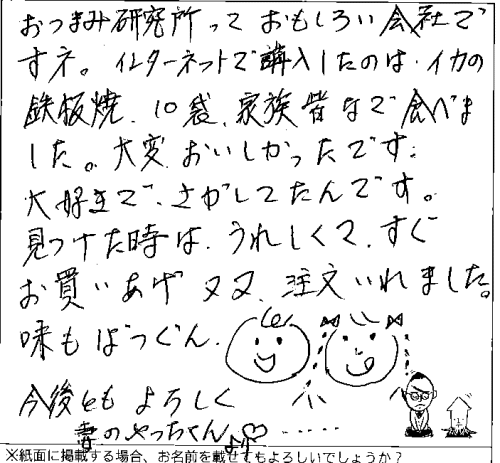 おつまみ研究所って おもしろい会社で
すネ。インターネットで購入したのは、イカの
鉄板焼、10袋、家族皆なで食べま
した。大変おいしかったです。
大好きで、さがしてたんです。
見つけた時は、うれしくて、すぐ
お買いあげ 又又、注文いれました。
味もばつぐん、
今後ともよろしく
妻のやっちくんより♡……
※紙面に掲載する場合、お名前を載せてもよろしいでしょうか？